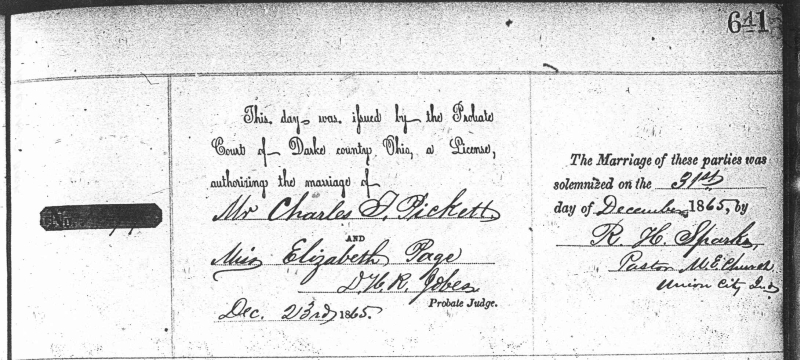 641
This day was issued by the Probate
Court of Darke county Ohio, a License,
authorizing the marriage of
Mr Charles F. Pickett
AND
Miss Elizabeth Page
D. H. R. Jobes
Probate Judge.
Dec. 23rd 1865.
No.
The Marriage of these parties was
solemnized on the 31st
day of December 1865, by
R. H. Sparks,
Pastor M. E. Church
Union City Ia